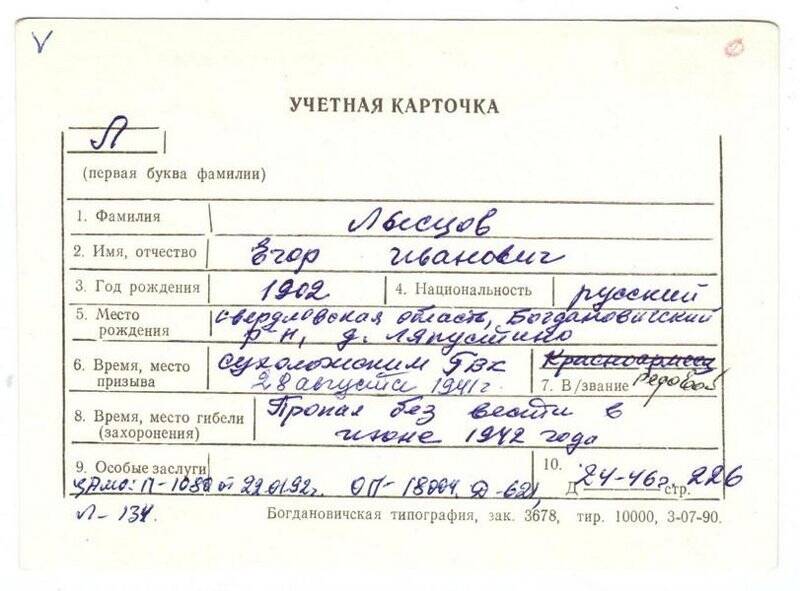 V
УЧЕТНАЯ КАРТОЧКА
Л
(первая буква фамилии)
1. Фамилия Лысцов
2. Имя, отчество Егор Иванович
3. Год рождения 1902 4. Национальность русский
5. Место рождения Свердловская область, Богдановичский
р-н, д. Ляпустино
6. Время, место призыва Сухоложским ГВК
28 августа 1941 г.
Красноармеец
7. В/звание рядовой
8. Время, место гибели (захоронения) Пропал без вести в
июне 1942 года
9. Особые заслуги
ЦАМО: П-1080 от 22.01.92г. ОП-18004, Д-621,
Л-134.
10. Д 24-46г. стр. 226
Богдановичская типография, зак. 3678, тир. 10000, 3-07-90.